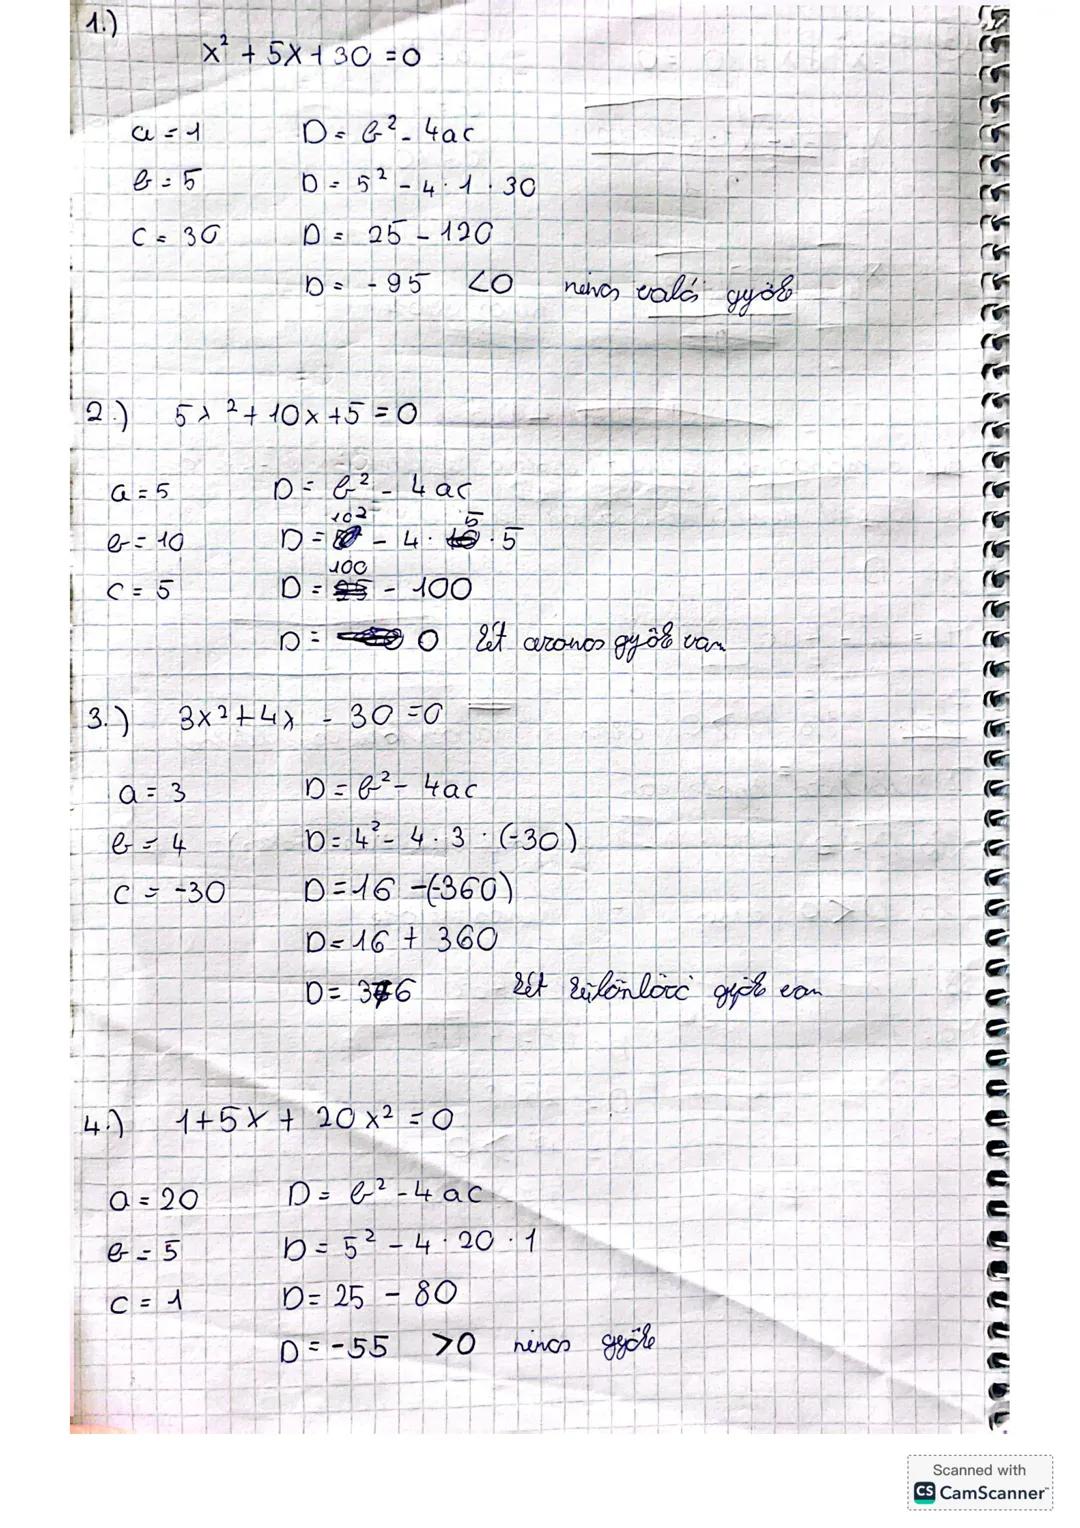 1.)
x² + 5x + 30 = 0
a = 1 D = b² - 4ac
b = 5 D = 5² - 4 · 1 · 30
c = 30 D = 25 - 120
D = -95 <0 nincs való gyök
2.) 5x² + 10x + 5 = 0
a = 5 D = b² - 4ac
b = 10 D = 10² - 4 · 5 · 5
c = 5 D = 100 - 100
D = 0 két azonos gyök van
3.) 3x² + 4x - 30 = 0
a = 3 D = b² - 4ac
b = 4 D = 4² - 4 · 3 · (-30)
c = -30 D = 16 - (-360)
D = 16 + 360
D = 376 két különböző gyök van
4.) 1 + 5x + 20x² = 0
a = 20 D = b² - 4ac
b = 5 D = 5² - 4 · 20 · 1
c = 1 D = 25 - 80
D = -55 >0 nincs gyök
Scanned with
CS CamScanner